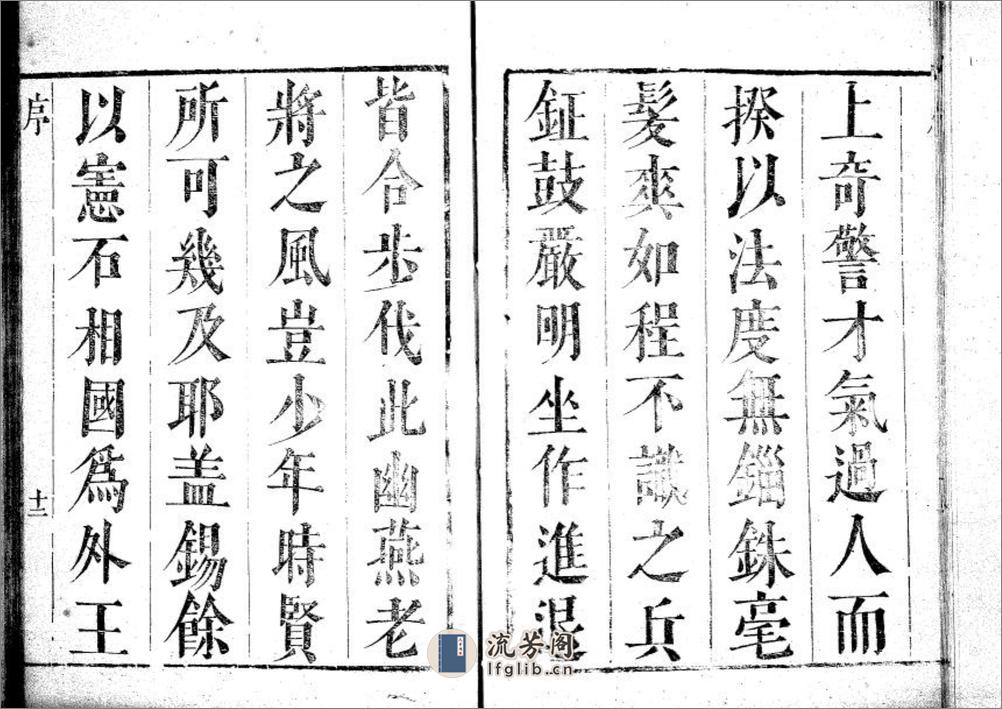 上奇警才氣過人而
揆以法度無錙銖毫
髮爽如程不識之兵
鉦鼓嚴明坐作進退
皆合步伐此幽燕老
將之風豈少年時賢
所可幾及耶盖錫餘
以憲石相國爲外王
序
十二
流芳阁
lfglib.cn